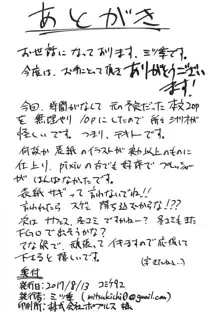 あとがき
お世話になっております、ミツ季です。
今度は、お手にとって頂き ありがとうござい
ます!
今回、時間がなくて 元の予定だった本文20P
を 無理やり 10Pにしたので 所々シナリオが
怪しいです。つまり、テキトーです。
何故か 表紙のイラストが 思わ以上のものに
仕上り、pixivの方でも好評で プレッシャーが
はんぱなかったです。
表紙サギって言わないでね!!
言われたら スゲェ 落ち込むからな!!??
次は サークス、冬コミ ですかねー? 冬コミもまた
FGOで出そうかな?
てな訳で、頑張って イキますので応援して
下さると嬉しいです。
奥付
発行日:2017/8/13 コミケ92
発行者:ミツ季 (mitsukichi@gmail.com)
印刷所:株式会社ポプルス 様